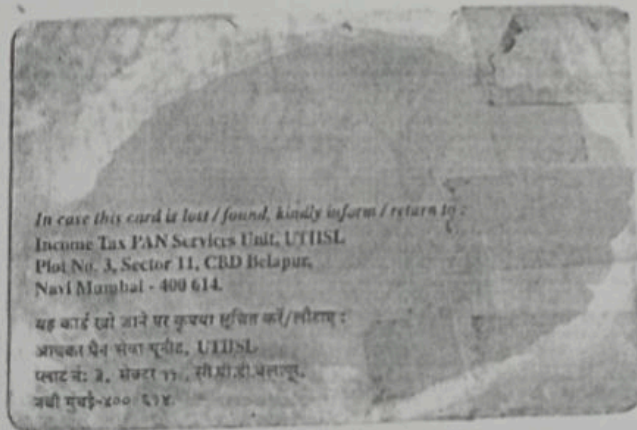 In case this card is lost / found, kindly inform / return to :
Income Tax PAN Services Unit, UTIISL
Plot No. 3, Sector 11, CBD Belapur,
Navi Mumbai - 400 614.
यह कार्ड खो जाने पर कृपया सूचित करें/लौटाए :
आयकर पैन सेवा यूनीट, UTIISL
प्लाट नं: ३, सेक्टर ११, सी.बी.डी.बेलापूर,
नवी मुंबई-४०० ६१४.